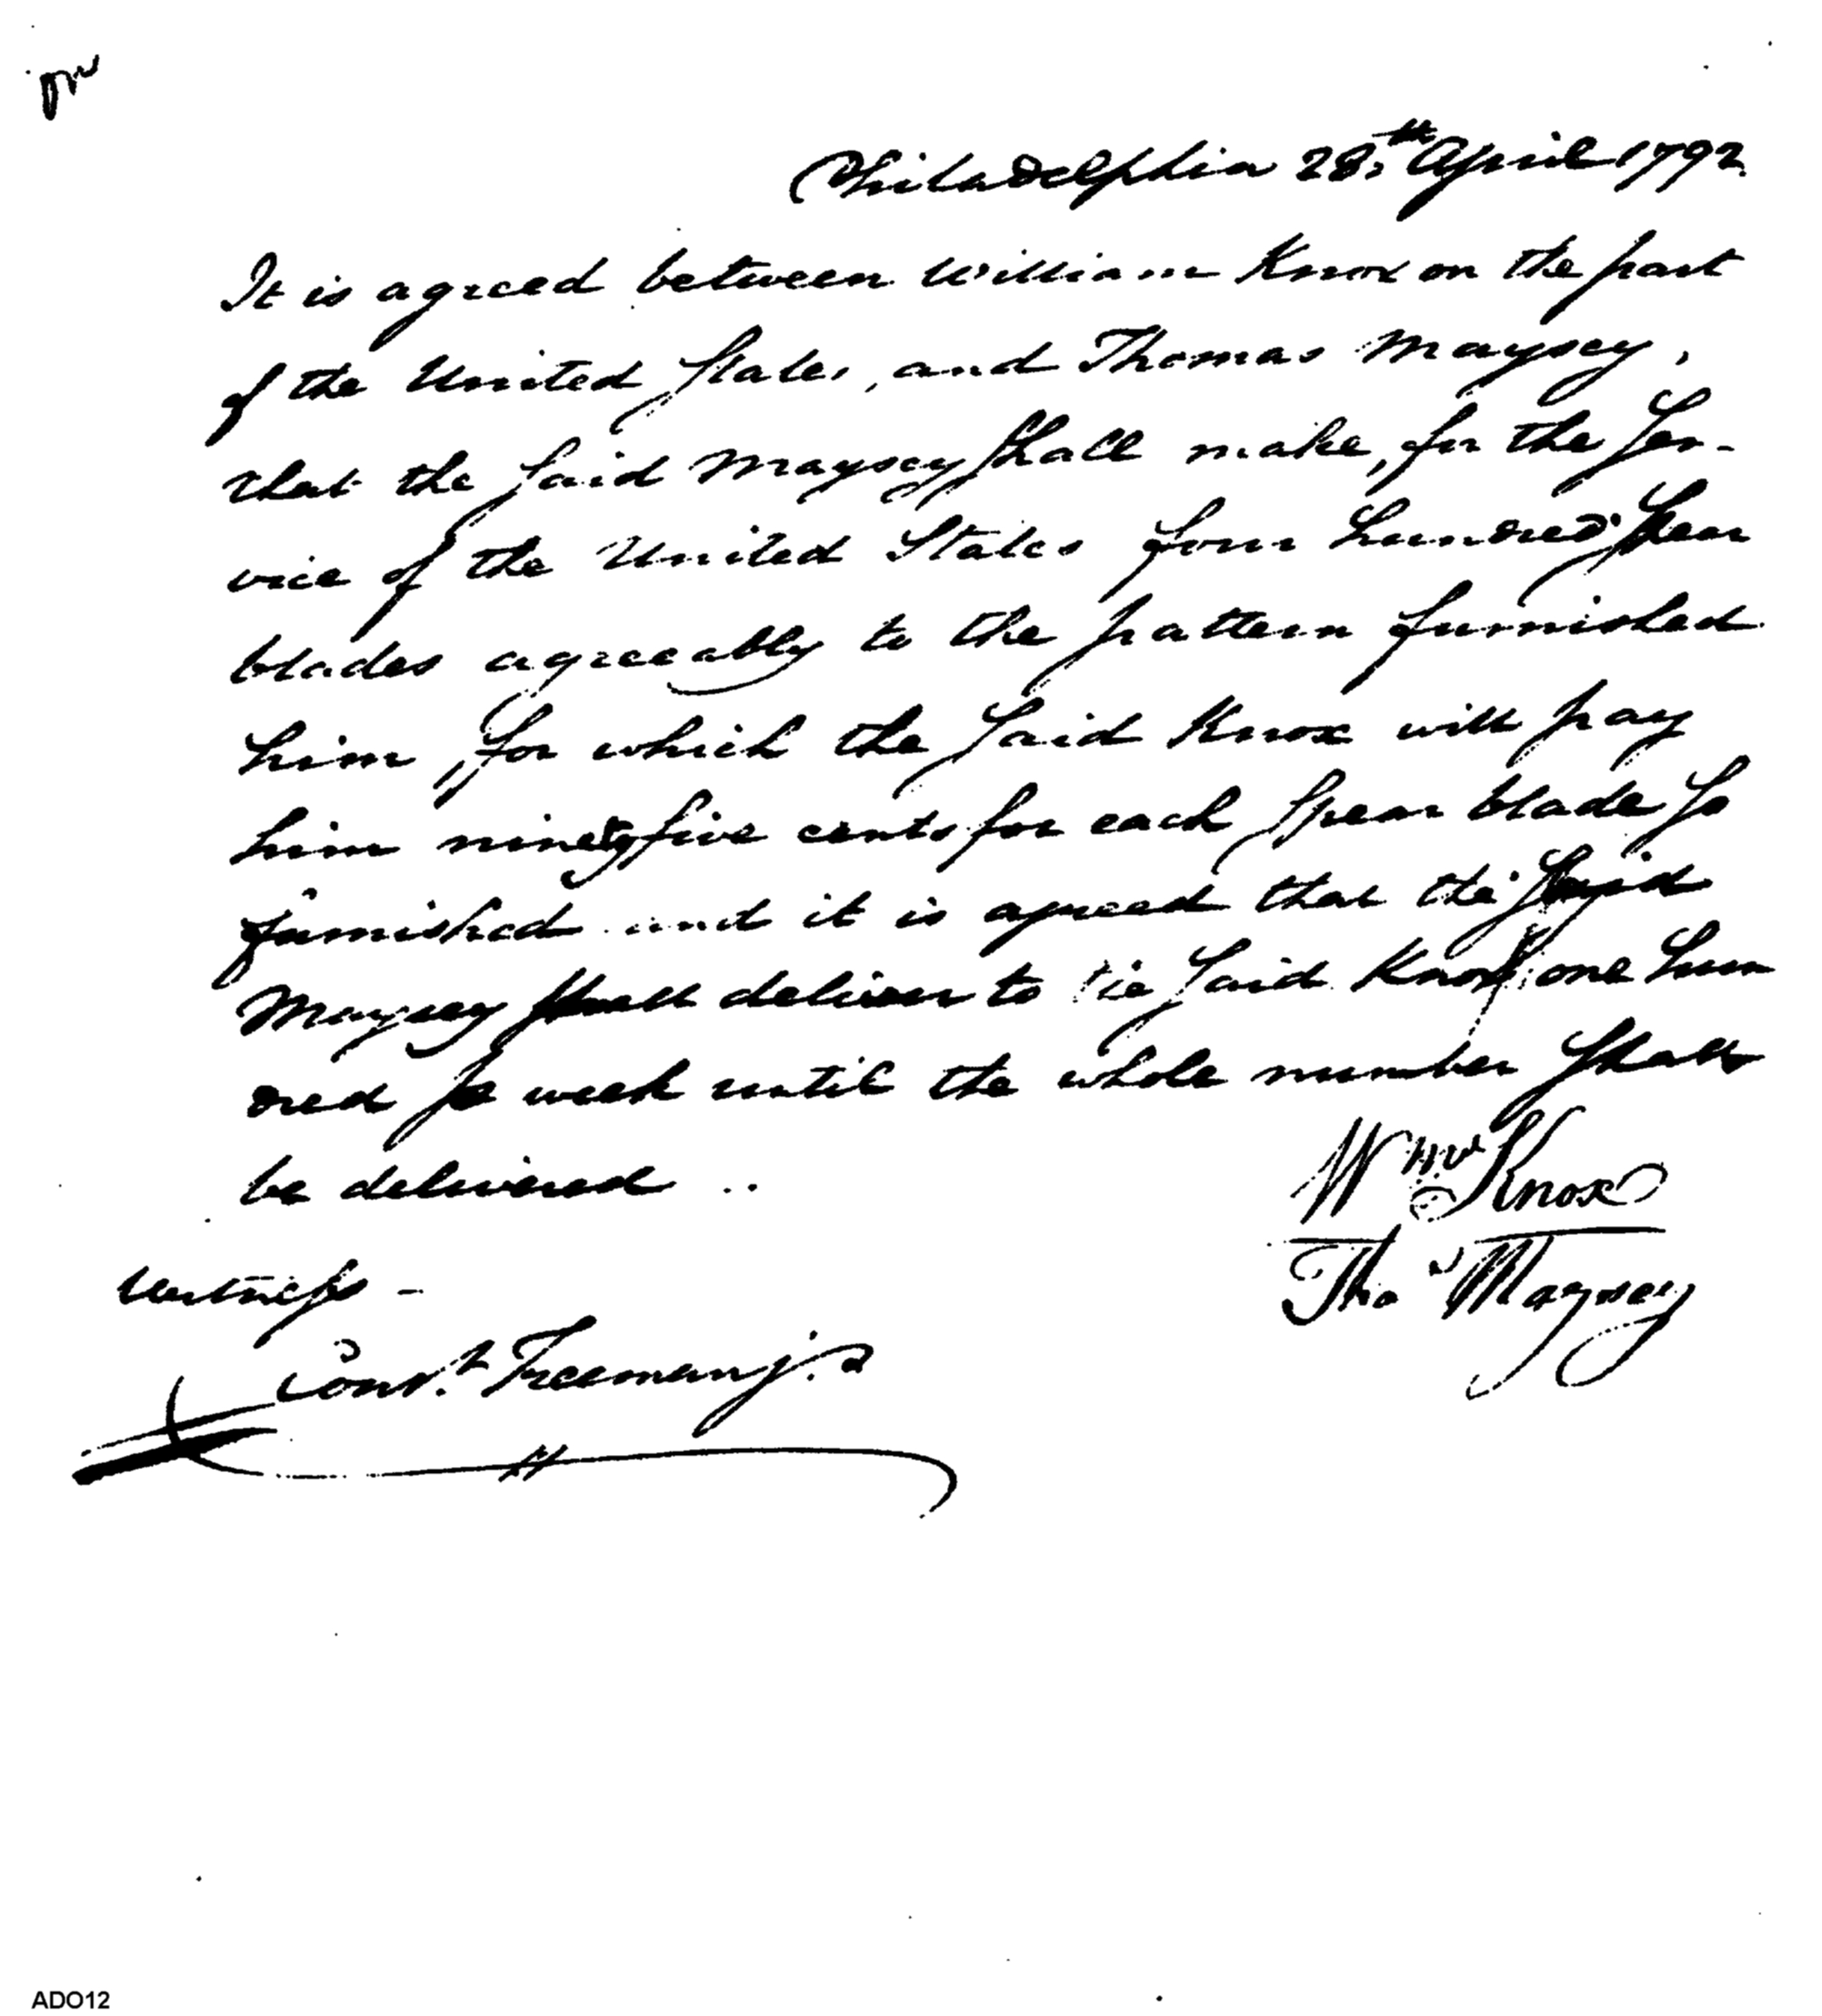 Philadelphia 28th April 1792.
It is agreed between William Knox on the part
of the United States, and Thomas Maysey,
that the said Maysey shall make, for the ser-
vice of the United States four hundred spear
blades agreeably to the pattern furnished
him, for which the said Knox will pay
him ninety five cents for each spear blade so
furnished and it is agreed that the said
Maysey shall deliver to the said Knox, one hun
dred per week until the whole number shall
be delivered ..
Wm Knox
Tho Maysey
Witness -
Const. Freeman jr.
ADO12